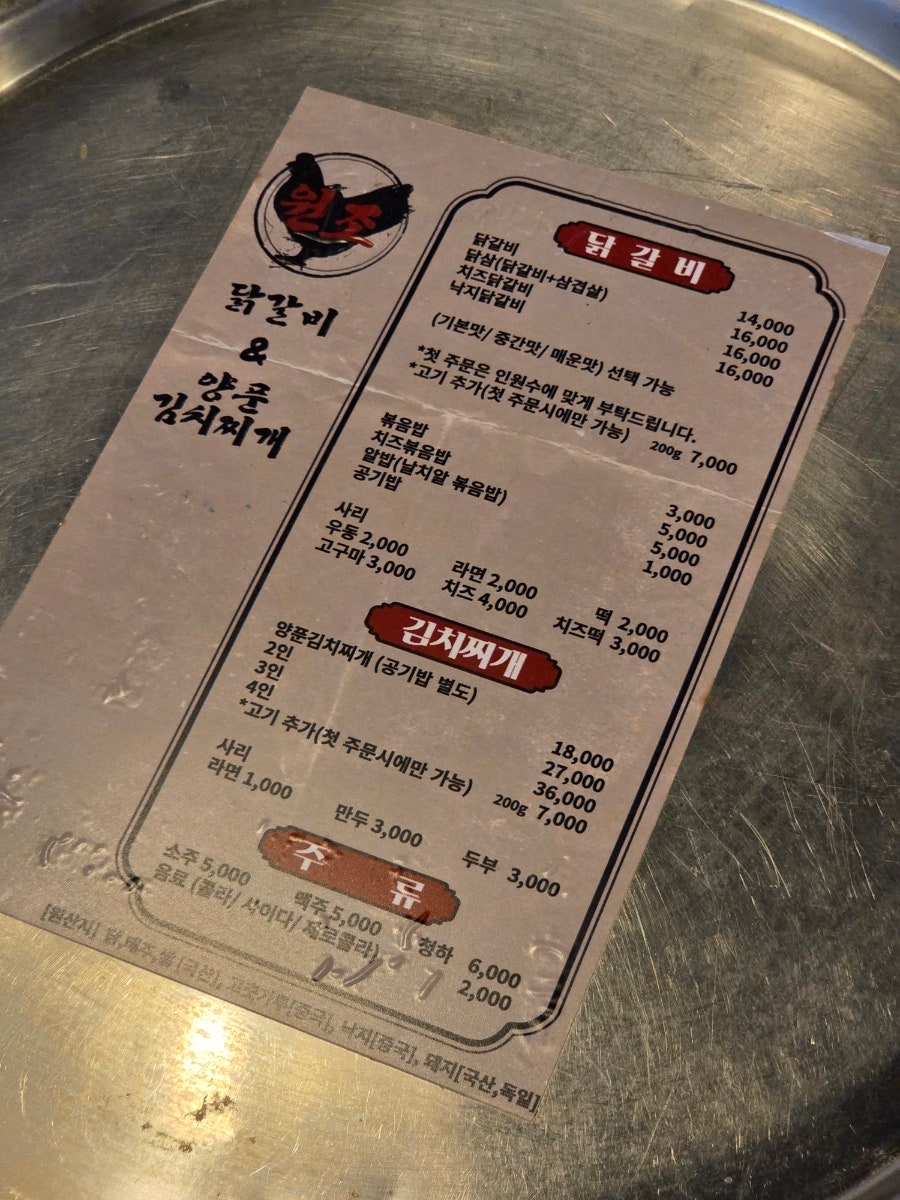 원조
닭갈비
&
양푼
김치찌개
닭 갈 비
닭갈비 14,000
닭삼(닭갈비+삼겹살) 16,000
치즈닭갈비 16,000
낙지닭갈비 16,000
(기본맛/ 중간맛/ 매운맛) 선택 가능
*첫 주문은 인원수에 맞게 부탁드립니다.
*고기 추가(첫 주문시에만 가능) 200g 7,000
볶음밥 3,000
치즈볶음밥 5,000
알밥(날치알 볶음밥) 5,000
공기밥 1,000
사리
우동 2,000 라면 2,000 떡 2,000
고구마 3,000 치즈 4,000 치즈떡 3,000
김치찌개
양푼김치찌개 (공기밥 별도)
2인 18,000
3인 27,000
4인 36,000
*고기 추가(첫 주문시에만 가능) 200g 7,000
사리
라면 1,000 만두 3,000 두부 3,000
주 류
소주 5,000 맥주 5,000 청하 6,000
음료 (콜라/ 사이다/ 제로콜라) 2,000
[원산지] 닭,배추,쌀 [국산], [중국], 낙지[중국], 돼지[국산,독일]